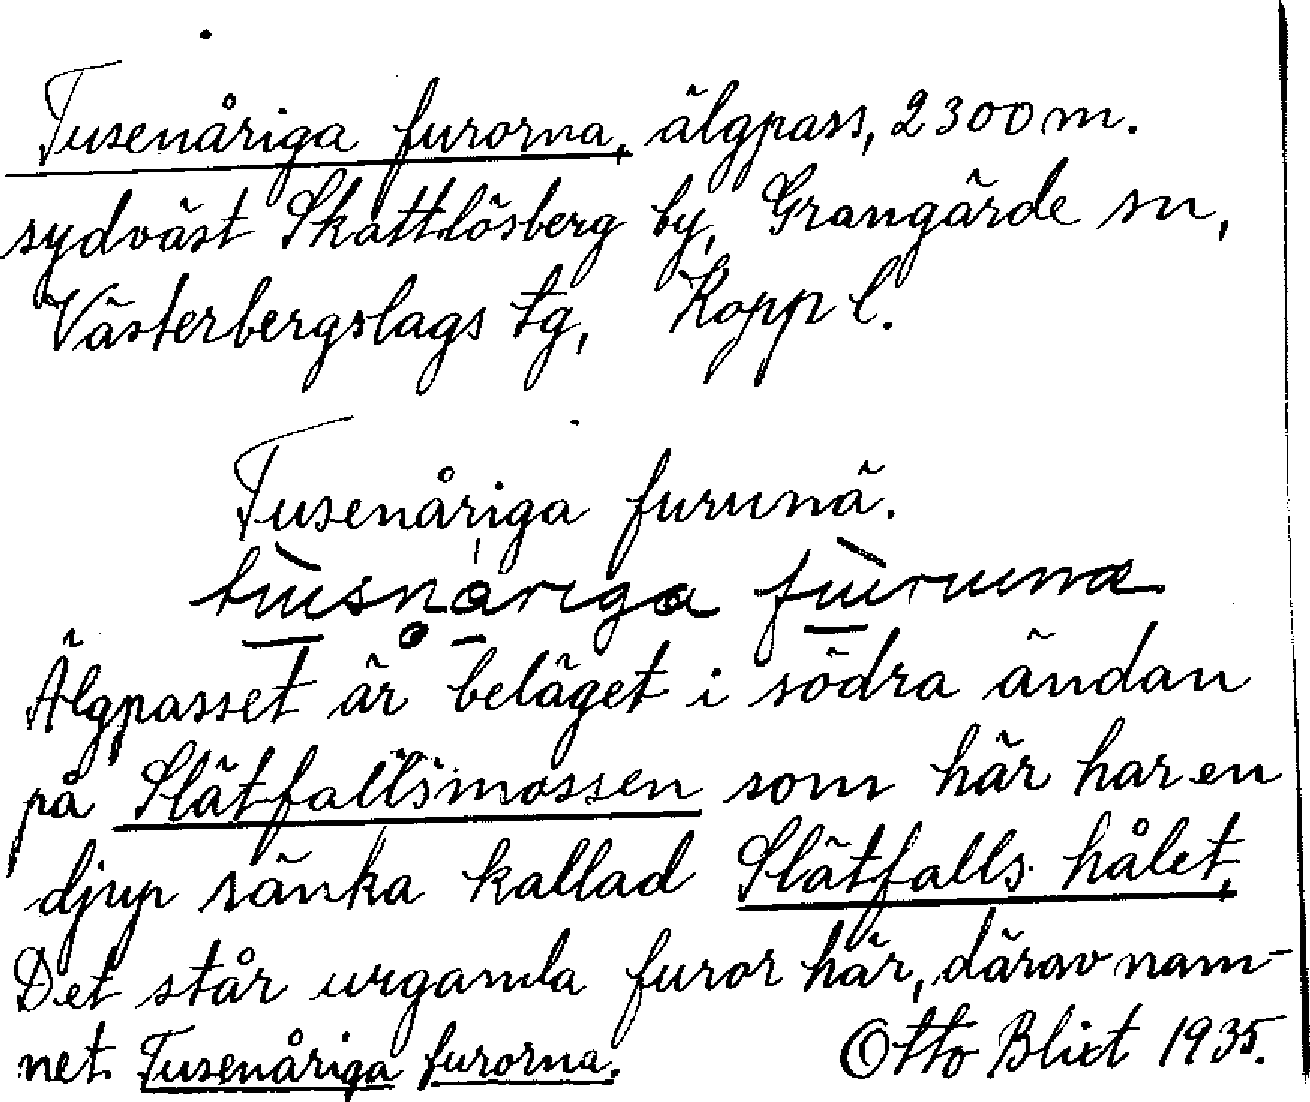 Tusenåriga furorna, älgpass, 2300 m.
sydväst Skattlösberg by, Grangärde sn,
Västerbergslags tg, Kopp l.
Tusenåriga furunä.
Älgpasset är beläget i södra ändan
på Slätfallsmossen som här har en
djup sänka kallad Slätfalls hålet.
Det står urgamla furor här, därav nam-
net Tusenåriga furorna. Otto Blixt 1935.